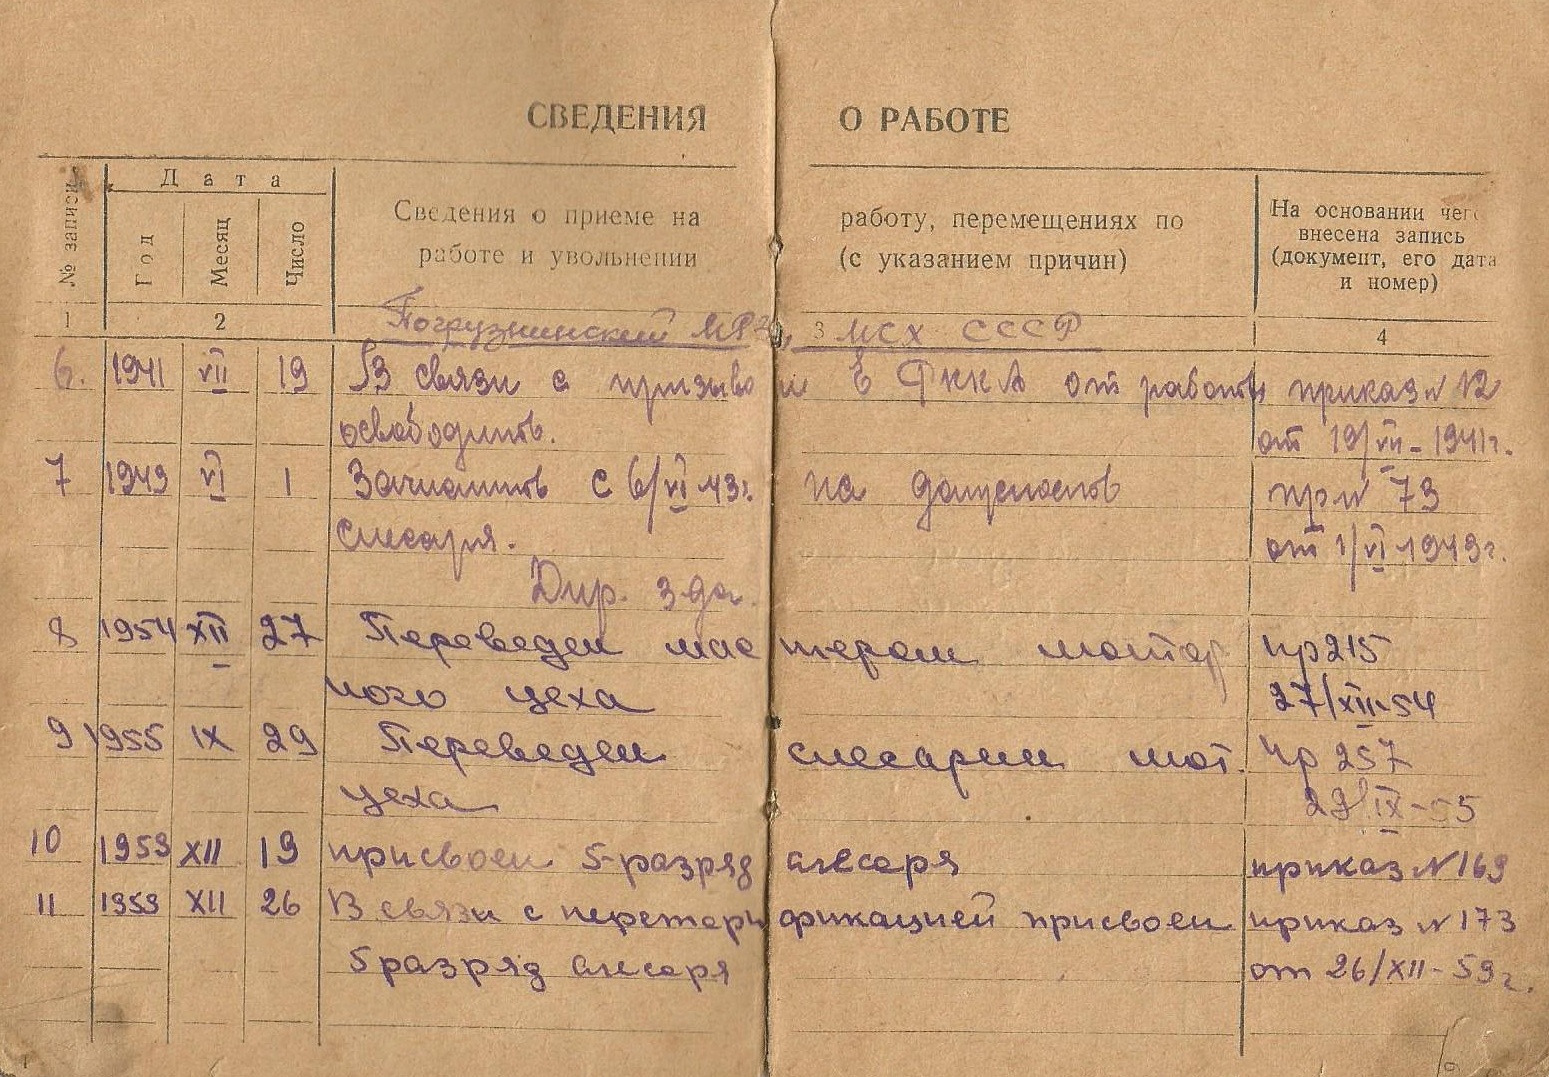 СВЕДЕНИЯ О РАБОТЕ
№ записи
Дата
Год
Месяц
Число
Сведения о приеме на работу, перемещениях по
работе и увольнении (с указанием причин)
На основании чего
внесена запись
(документ, его дата
и номер)
1 2 3 4
МСХ СССР
6. 1941 VII 19 В связи с призывом в РККА от работы приказ N 12
освободить. от 19/VII-1941г.
7 1943 VI 1 Зачислить с 6/VI 43г. на должность пр N 73
слесаря. от 1/VI 1943г.
Дир. З-да.
8 1954 XII 27 Переведен мастером мотор пр 215
ного цеха 27/XII-54
9 1955 IX 29 Переведен слесарем мот. пр 257
цеха 29/IX-55
10 1959 XII 19 присвоен 5-разряд слесаря приказ N 169
11 1959 XII 26 В связи с перетарификацией присвоен приказ N 173
5 разряд слесаря от 26/XII-59г.